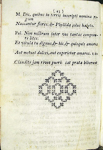 (24)
M. Dic, quibus in terris
Nascantur flores: & Phyllida solus habeto.
Pal. Non nostrum inter vos tantas componere lites.
Et vitula tu dignus & hic: & quisquis amores
Aut metuet dulces, aut experietur amaros.
Claudite jam rivos pueri sat prata biberunt